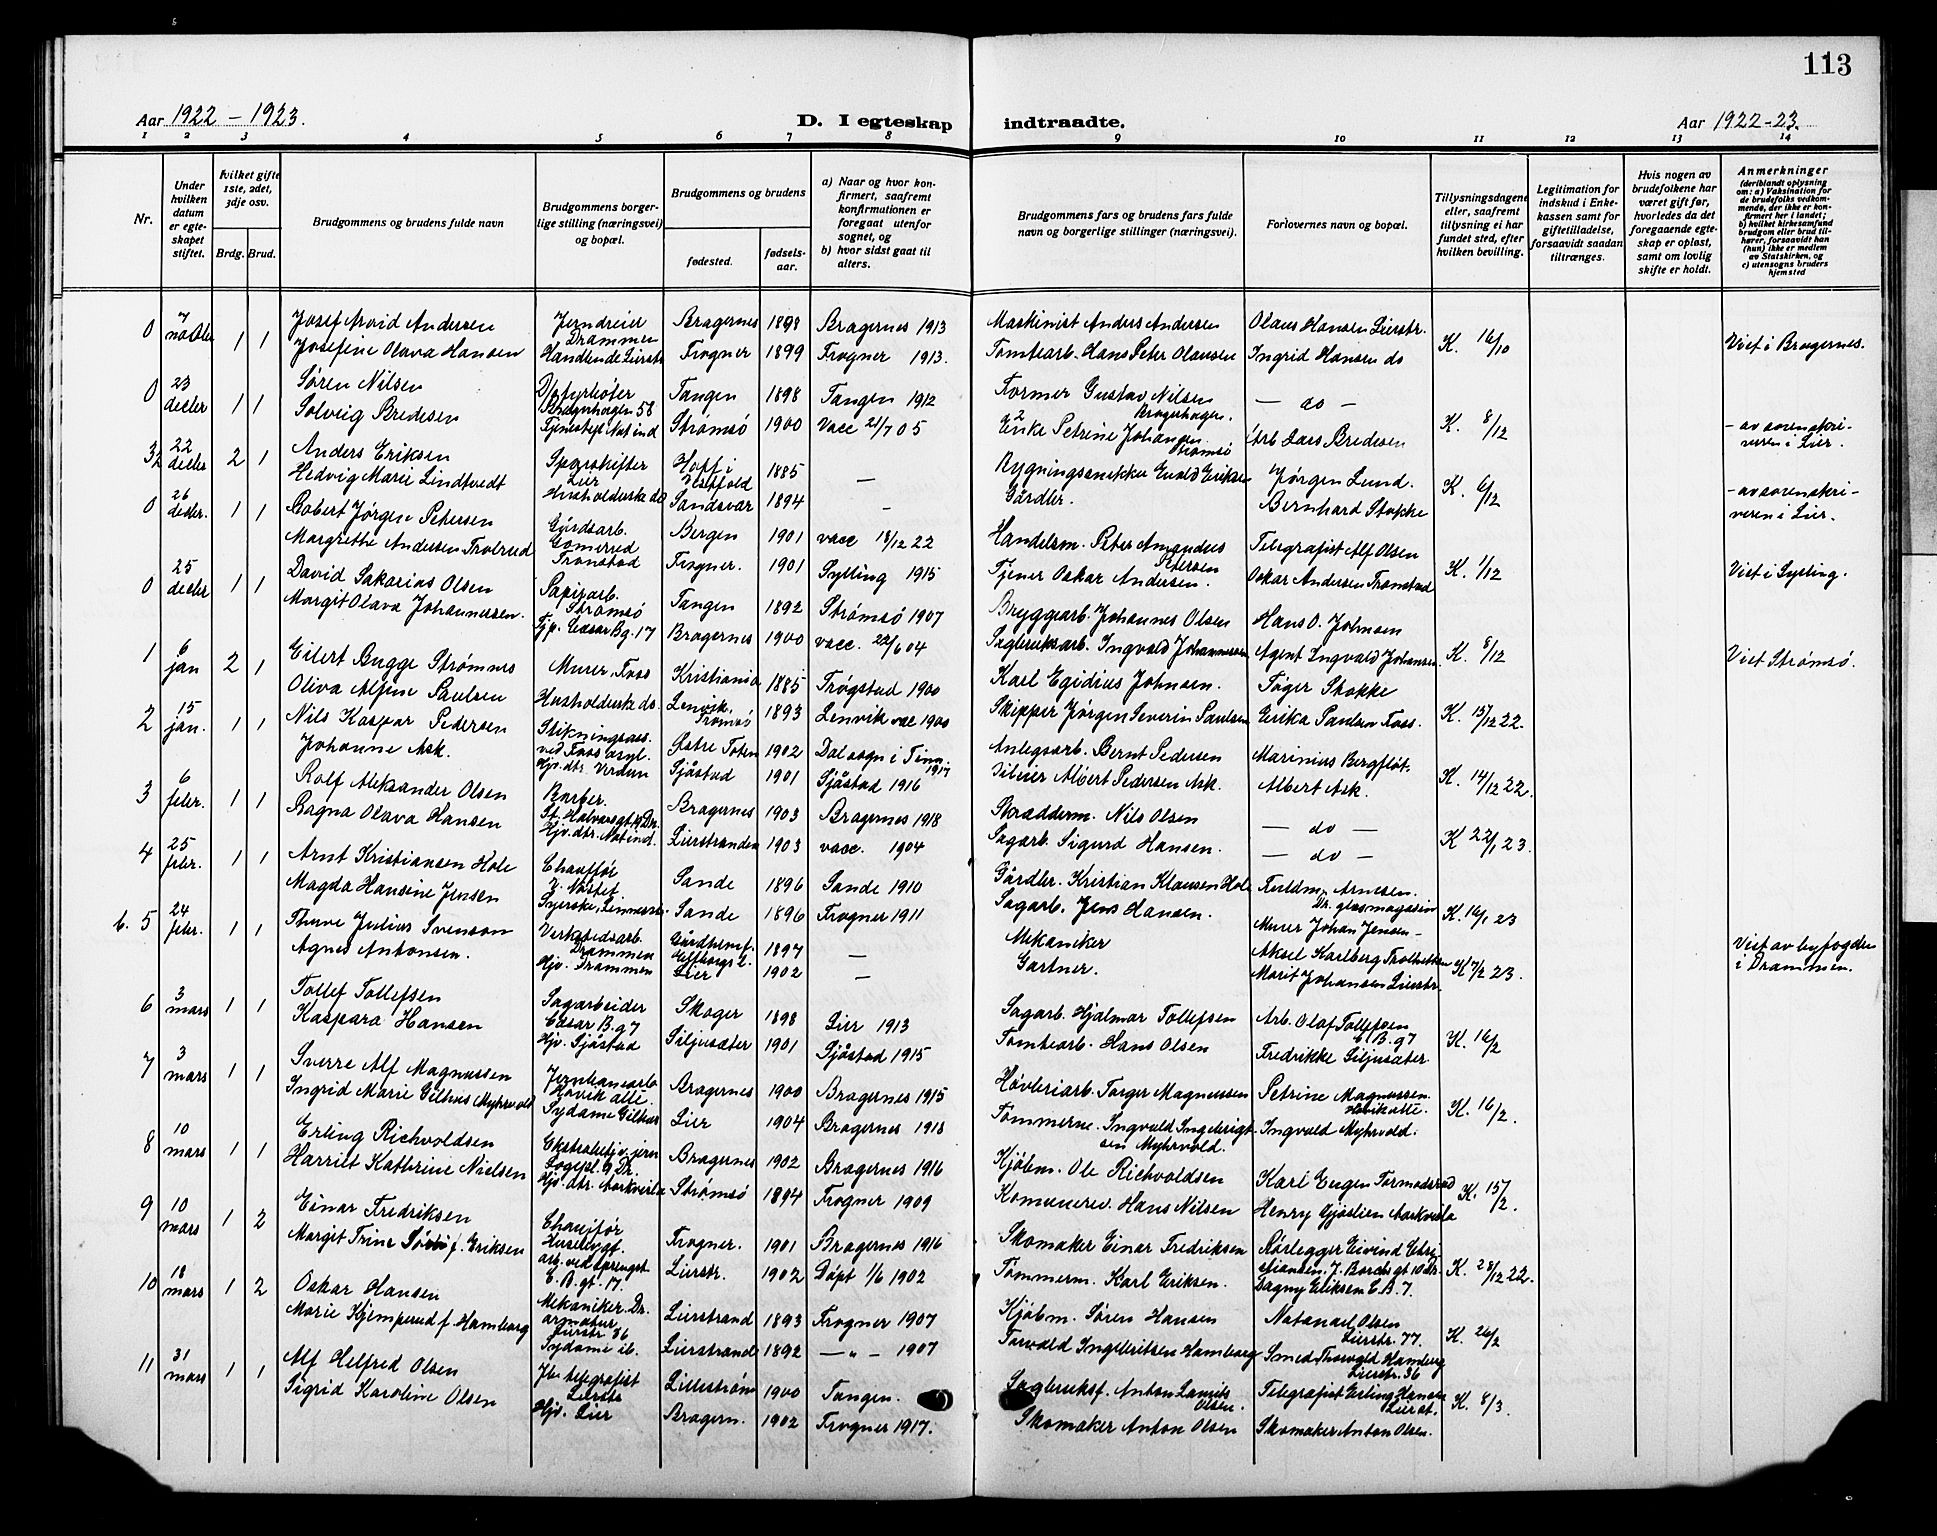 113
Aar 1922 – 1923. D. I egteskap indtraadte. Aar 1922-23.
1 2 3 4 5 6 7 8 9 10 11 12 13 14
Nr.
Under hvilken datum er egteskapet stiftet.
hvilket gifte 1ste, 2det, 3dje osv.
Brdg. Brud.
Brudgommens og brudens fulde navn
Brudgommens borgerlige stilling (næringsvei) og bopæl.
Brudgommens og brudens
fødested. fødselsaar.
a) Naar og hvor konfirmert, saafremt konfirmationen er foregaat utenfor sognet, og
b) hvor sidst gaat til alters.
Brudgommens fars og brudens fars fulde navn og borgerlige stillinger (næringsvei).
Forlovernes navn og bopæl.
Tillysningsdagene eller, saafremt tillysning ei har fundet sted, efter hvilken bevilling.
Legitimation for indskud i Enkekassen samt for giftetilladelse, forsaavidt saadan tiltrænges.
Hvis nogen av brudefolkene har været gift før, hvorledes da det foregaaende egteskap er opløst, samt om lovlig skifte er holdt.
Anmerkninger (deriblandt oplysning om: a) Vaksination for de brudefolks vedkommende, der ikke er konfirmert her i landet; b) hvilket kirkesamfund brudgom eller brud tilhører, forsaavidt han (hun) ikke er medlem av Statskirken, og c) utensogns bruders hjemsted
0 7 1 1 Josef Arvid Andersen Jerndreier Drammen Bragernes 1898 Bragernes 1913 Maskinist Anders Andersen Olaus Hansen Lierstr. K. 16/10 Viet i Bragernes.
Josefine Olava Hansen Handlende Lierstr. Frogner 1899 Frogner 1913. Tomtearb. Hans Peter Olausen Ingrid Hansen do
0 23 decbr 1 1 Søren Nilsen Tangen 1898 Tangen 1912 Former Gustav Nilsen – do – K. 8/12 – av sorenskriveren i Lier.
Solveig Bredesen Strømsø 1900 Vacc 21/7 05 Enke Petrine Johansen Strømsø Arb. Lars Bredesen
22 decbr 2 1 Anders Eriksen Lier Hoff i Vestfold 1885 – Jørgen Lund. K. 6/12 – av sorenskriveren i Lier.
Hedvig Marie Lindtvedt Husholderske do Sandsvær 1894 – Gårdbr. Bernhard Stokke
0 26 decbr. 1 1 Robert Jørgen Petersen Gårdsarb. Gomerud Bergen 1901 vacc 18/12 22 Handelsm. Peter Amandus Petersen Telegrafist Alf Olsen K. 1/12 Viet i Sylling.
Margrethe Andersen Tronstad Frogner. 1901 Sylling 1915 Tjener Oskar Andersen. Oskar Andersen Tronstad
0 25 decbr 1 1 David Sakarias Olsen Papirarb. Strømsø Tangen 1892 Strømsø 1907 Bryggearb. Johannes Olsen Hans O. Johnsen K. 8/12 Viet Strømsø.
Margit Olava Johannessen. Tjp. Cæsar Bg. 17 Bragernes 1900 vacc. 22/6 04 Sagbruksarb. Ingvald Johannesen Agent Ingvald Johansen
1 6 jan 2 1 Eilert Bugge Strømnes Murer, Foss Kristiania 1885 Trøgstad 1900 Karl Egidius Johnsen. Tøger Stokke K. 15/12 22.
Oliva Alfine Paulsen Husholderske do. Lenvik, Tromsø 1893 Lenvik vac 1900 Skipper Jørgen Severin Paulsen Erika Paulsen Foss.
2 15 jan. 1 1 Nils Kaspar Pedersen Stikningsass. ved Foss asyl. Østre Toten 1902 Dal sogn i Tinn 1917 Anlegsarb. Bernt Pedersen Marinius Bergflot. K. 14/12 22.
Johanne Ask. Hjv. dtr. Verdun Sjåstad 1901 Sjåstad 1916 Albert Pedersen Ask. Albert Ask.
3 6 febr. 1 1 Rolf Aleksander Olsen Barber. St. Halvarsgt. Bragernes 1903 Bragernes 1918 Skrædderm. Nils Olsen – do – K 22/1 23.
Ragna Olava Hansen Hjv. dtr. Nøst ind. Lierstranden 1903 vacc. 1904 Sagarb. Sigurd Hansen. – do –
4 25 febr. 1 1 Arnt Kristiansen Hole Chauffør Sande 1896 Sande 1910 Gårdbr. Kristian Klausen Hole Fuldm. Arnesen. Dr. glasmagasin K. 16/1 23
Magda Hansine Jensen Syerske, Sande 1896 Frogner 1911 Sagarb. Jens Hansen. Murer Johan Jensen –
b. 5 24 febr. 1 1 Thure Julius Svensson Verkstedsarb. Drammen 1897 – Mekaniker Aksel Karlberg K 7/2 23. Viet av byfogden i Drammen.
Agnes Antonsen. Hjv. Drammen Lier 1902 – Gartner. Marit Johansen Lierstr.
6 3 mars 1 1 Tollef Tollefsen Sagarbeider Cæsar B. g 7 Skoger 1898 Lier 1913 Sagarb. Hjalmar Tollefsen Arb. Olaf Tollefsen C. B. g 7 K. 16/2
Kaspara Hansen Hjv. Sjåstad Siljusæter 1901 Sjåstad 1915 Tomtearb. Hans Olsen Fredrikke Siljusæter
7 3 mars 1 1 Sverre Alf Magnussen Jernbanearb. Havik allé. Bragernes 1900 Bragernes 1915 Høvleriarb. Torger Magnussen Petrine Magnussen. Havik allé. K. 16/2.
Ingrid Marie Gilhus Myhrvold Sydame Gilhus Lier 1904 Bragernes 1918 Tømmerm. Ingvald Ingebrigtsen Myhrvold. Ingvald Myhrvold.
8 10 mars 1 1 Erling Richvoldsen Bragernes 1902 Bragernes 1916 Kjøbm. Ole Richvoldsen Karl Eugen Tormodsrud K. 15/2.
Harriet Kathrine Nielsen Hjv. dtr. Strømsø 1894 Frogner 1909 Hans Nilsen Henry Gjøslien
9 10 mars 1 2 Einar Fredriksen Chauffør Frogner. 1901 Bragernes 1916 Skomaker Einar Fredriksen Rørlegger Eivind Christiansen. J. Borchsgt 10 Dr. K. 28/12 22.
Margit Trine f. Eriksen C. B. gt. 17. Lierstr. 1902 Døpt 1/6 1902 Tømmerm. Karl Eriksen. Dagny Eriksen C. B. 7.
10 18 mars 1 2 Oskar Hansen Mekaniker Dr. armatur Lierstr 36 Lierstrand 1893 Frogner 1907 Kjøbm. Søren Hansen Natanael Olsen Lierstr. 77. K. 26/2
Marie Kjemperud f. Hamborg Sydame ib. Lierstrand 1892 – " – 1907 Torvald Ingebritsen Hamborg Smed Thorvald Hamborg Lierstr. 36
11 31 mars 1 1 Alf Helfred Olsen Jb. telegrafist Lillestrøm 1900 Tangen. Sagbruksf. Anton Olsen. Telegrafist Erling Hansen Lierst. K. 8/3.
Sigrid Karoline Olsen Hjv. Lier Bragern. 1902 Frogner 1917. Skomaker Anton Olsen Skomaker Anton Olsen.